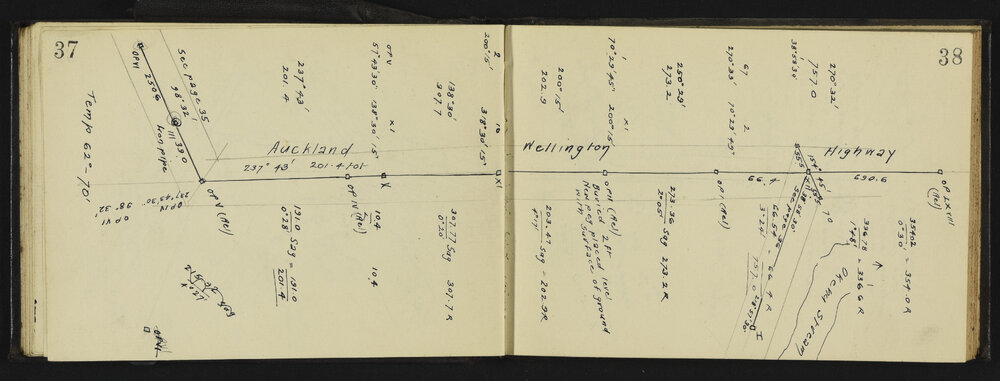 37
See page 35
OPVI
250.6
98° 32'
III 39.0
Iron pipe
Temp 62° - 70'
Auckland
237° 43'
201.4
OP V (Rel)
OP IV
27° 43' 30"
98° 32'
OP VI
237° 43'
201.4
OP V
57° 43' 30"
138° 30' 15"
XI
OP IV (Rel)
X
131.0 Sag = 131.0
0° 28'
201.4
10.4
10.4
138° 30'
307.7
307.77 Sag 307.7 R
0° 20'
2
200° 15'
10
318° 30' 15"
XI
OPVI
38
Wellington
Highway
200° 15'
202.9
70° 29' 45"
XI
200° 15'
OP II (Rel)
Buried 2 ft
New peg placed level
with surface of ground
203.47 Sag = 202.9 R
250° 29'
273.2
273.36 Sag 273.2 R
2° 05'
270° 33'
10° 29' 45"
2
OP I (Rel)
66.4
38° 53' 30"
270° 32'
757.0
690.6
OP LXVIII
(Rel)
See page 36
66.54 = 66.4 R
3° 24'
757.0
I
70
Okeau Stream
336.78 = 336.6 R
1° 48'
354.02 = 354.0 R
0° 30'